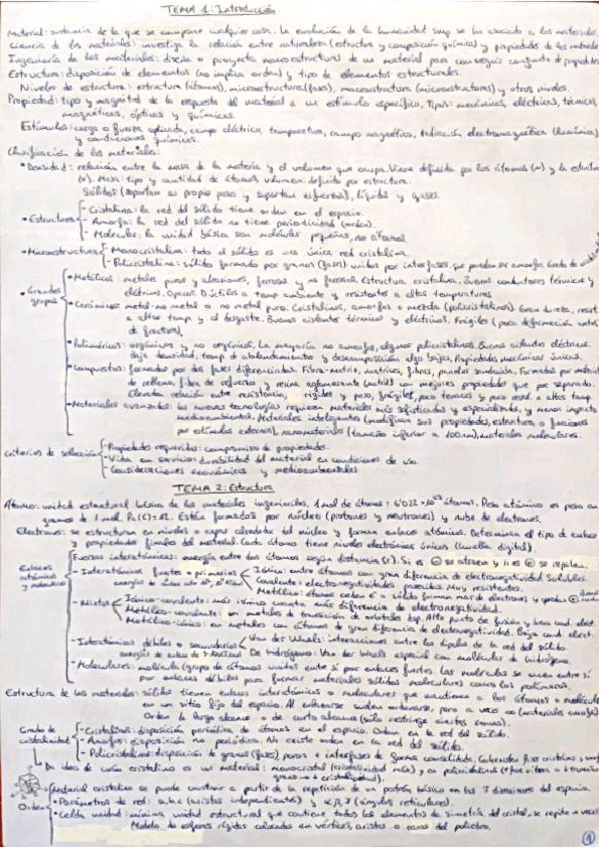 TEMA 1: Introducción
Material: sustancia de la que se compone cualquier cosa. La evolución de la humanidad siempre se ha asociado a los materiales.
Ciencia de los materiales: investiga la relación entre naturaleza (estructura y composición química) y propiedades de los materiales
Ingeniería de los materiales: diseña o proyecta estructuras de un material para conseguir conjunto de propiedades
Estructura: disposición de elementos (no implica orden) y tipo de elementos estructurales.
Niveles de estructura: estructura (átomos), microestructura (fases), macroestructura (microestructuras) y otros niveles.
Propiedad: tipo y magnitud de la respuesta del material a un estímulo específico. Tipos: mecánicas, eléctricas, térmicas,
magnéticas, ópticas y químicas.
Estímulos: carga o fuerza aplicada, campo eléctrico, temperatura, campo magnético, radiación electromagnética (lumínica)
y condiciones químicas.
Clasificación de los materiales:
• Densidad: relación entre la masa de la materia y el volumen que ocupa. Viene definida por los átomos (m) y la estructura
(V). Masa: tipo y cantidad de átomos, volumen: definido por estructura.
Sólidos (soportan su propio peso y soportan esfuerzos), líquidos y gases.
• Estructura - Cristalina: la red del sólido tiene orden en el espacio.
- Amorfa: la red del sólido no tiene periodicidad (orden).
- Molecular: la unidad básica son moléculas pequeñas, no átomos
• Microestructura - Monocristalina: todo el sólido es una única red cristalina.
- Policristalina: sólido formado por granos (fases) unidos por interfases, que pueden ser amorfas. Grado de
• Grandes grupos
• Metálicos: metales puros y aleaciones, ferrosas y no ferrosas. Estructura cristalina. Buenos conductores térmicos y
eléctricos. Opacos. Dúctiles a temp ambiente y resistentes a altas temperaturas.
• Cerámicos: metal-no metal o no metal puro. Cristalinos, amorfos o mezcla (policristalinos). Gran dureza, resist.
a altas temp. y al desgaste. Buenos aislantes térmicos y eléctricos. Frágiles (poca deformación antes
de fractura).
• Poliméricos: orgánicos y no orgánicos. La mayoría son amorfos, algunos policristalinos. Buenos aislantes eléctricos.
Baja densidad, temp. de ablandamiento y descomposición algo bajas. Propiedades mecánicas únicas.
• Compuestos: formados por dos fases diferenciadas. Fibra-matriz, matrices, fibras, paneles sandwich. Formados por material
de relleno, fibra de refuerzo y resina aglomerante (matriz) con mejores propiedades que por separado.
Elevada relación entre resistencia, rigidez y peso, frágiles, poco tenaces y poca resist. a altas temp.
• Materiales avanzados: las nuevas tecnologías requieren materiales más sofisticados y especializados, y menos impacto
medioambiental. Materiales inteligentes (modifican sus propiedades, estructura o funciones
por estímulos externos), nanomateriales (tamaño inferior a 100 nm), materiales moleculares.
Criterios de selección - Propiedades requeridas: compromiso de propiedades.
- Vida en servicio: durabilidad del material en condiciones de uso.
- Consideraciones económicas y medioambientales
TEMA 2: Estructura
Átomo: unidad estructural básica de los materiales ingenieriles. 1 mol de átomos = 6'022 × 10²³ átomos. Peso atómico es peso en
gramos de 1 mol. Pa (C) = 12. Están formados por núcleo (protones y neutrones) y nube de electrones.
Electrones: se estructuran en niveles o capas alrededor del núcleo y forman enlaces atómicos. Determinan el tipo de enlace
y propiedades finales del material. Cada átomo tiene niveles electrónicos únicos (huella digital).
Enlaces atómicos y moleculares
Fuerzas interatómicas: energía entre dos átomos según distancia (r). Si es ⊖ se atraen y si es ⊕ se repelen.
- Interatómicos fuertes o primarios
Iónico: entre átomos con gran diferencia de electronegatividad. Solubles.
Covalente: electronegatividades parecidas. Muy resistentes.
Metálico: átomos ceden e⁻ a sólido formando mar de electrones y quedan ⊕
- Mixtos
Iónico-covalente: más iónico cuanta más diferencia de electronegatividad.
Metálico-covalente: en metales de transición de orbitales dsp. Alto punto de fusión y baja cond. eléct.
Metálico-iónico: en metales con átomos de gran diferencia de electronegatividad. Baja cond. eléct.
- Interatómicos débiles o secundarios
Van der Waals: interacciones entre los dipolos de la red del sólido.
De hidrógeno: Van der Waals especial con moléculas de hidrógeno.
- Moleculares: molécula (grupo de átomos unidos entre sí por enlaces fuertes). Las moléculas se unen entre sí
por enlaces débiles para formar materiales sólidos moleculares como los polímeros.
Estructura de los materiales: sólidos tienen enlaces interatómicos o moleculares que mantienen a los átomos o moléculas
en un sitio fijo del espacio. Al enlazarse suelen ordenarse, pero a veces no (materiales amorfos)
Orden de largo alcance o de corto alcance (solo restringe ciertas zonas).
Grado de cristalinidad
- Cristalinos: disposición periódica de átomos en el espacio. Orden en la red del sólido.
- Amorfos: disposición no periódica. No existe orden en la red del sólido.
- Policristalinos: disposición de granos (fases), poros e interfases de forma consolidada.
Da idea de cuán cristalino es un material: monocristal (cristalinidad máx) y en policristalinos
grano → cristalinidad).
Orden
• Material cristalino se puede construir a partir de la repetición de un patrón básico en las 3 direcciones del espacio.
• Parámetros de red: a, b, c (aristas independientes) y α, β, γ (ángulos reticulares).
• Celda unidad: mínima unidad estructural que contiene todos los elementos de simetría del cristal, se repite
Modelo de esferas rígidas colocadas en vértices, aristas o caras del poliedro.
1